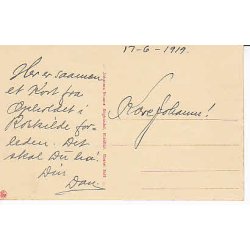 17-6-1919.
Her er saamen
et Kort fra
Opholdet i
Roskilde for-
leden. Det
skal Du ha'.
Din
Dan
Kære Johannes!